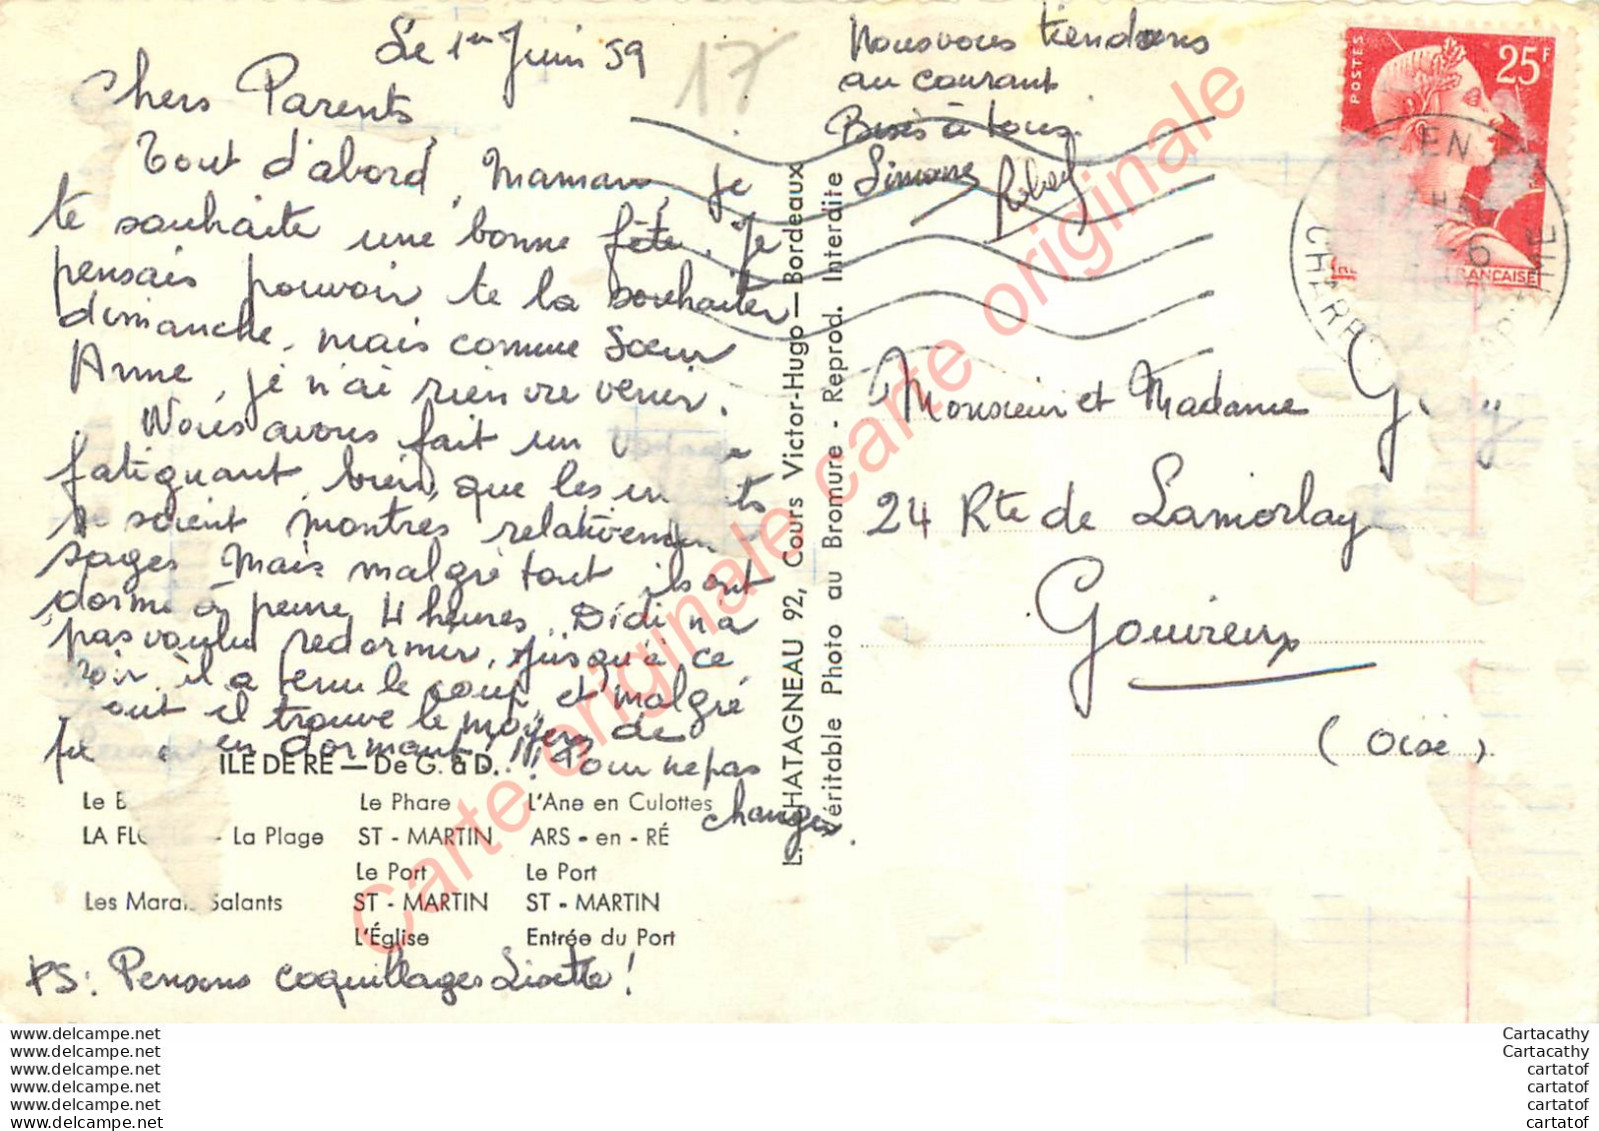 Le 1er Juin 59
17
Chers Parents,
Tout d'abord, Maman, je
te souhaite une bonne fête. Je
pensais pouvoir te la souhaiter
dimanche, mais comme Sœur
Anne, je n'ai rien vu venir.
Nous avons fait un
fatiguant, bien que les
se soient montrés relativement
sages. Mais malgré tout ils ont
dormi à peine 4 heures. Didi n'a
pas voulu redormir, jusqu'à ce
soir, il a tenu le coup, et malgré
tout il trouve le moyen de
en dormant !!! Pour ne pas
changer.
ILE DE RE — De G. à D.
Le Phare L'Ane en Culottes
- La Plage ST - MARTIN ARS - en - RÉ
Le Port Le Port
Les Marais Salants ST - MARTIN ST - MARTIN
L'Église Entrée du Port
PS: Pensons coquillages Lisette !
L. CHATAGNEAU 92, Cours Victor-Hugo — Bordeaux
Véritable Photo au Bromure - Reprod. Interdite
Nous vous tiendrons
au courant
Bises à tous.
Simone
POSTES
25F
EN
FRANÇAISE
Monsieur et Madame
24 Rte de Lamorlay
Gouvieux
(Oise).
Carte originale carte originale carte originale
www.delcampe.net
www.delcampe.net
www.delcampe.net
www.delcampe.net
www.delcampe.net
www.delcampe.net
Cartacathy
Cartacathy
cartatof
cartatof
cartatof
cartatof